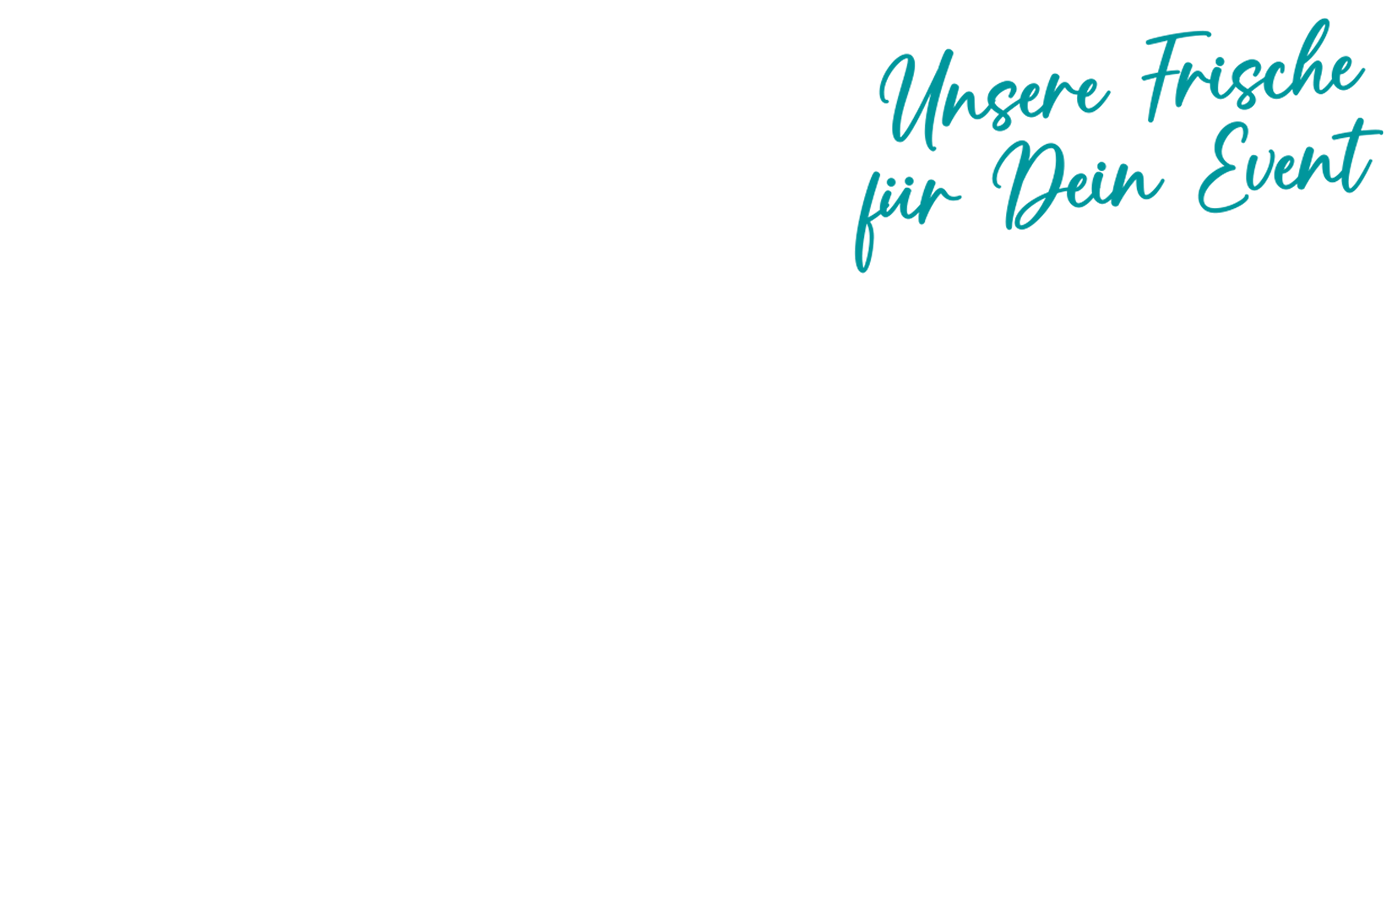 Unsere Frische
für Dein Event